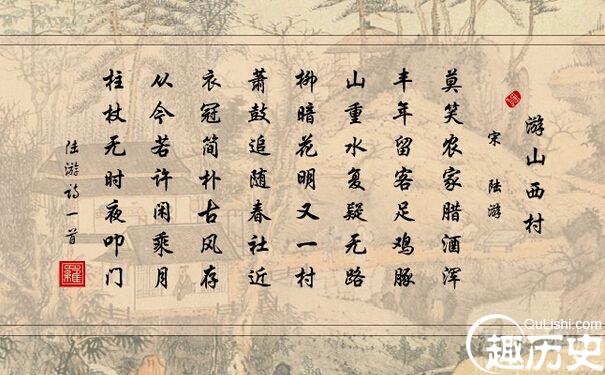 游山西村
宋 陆游
莫笑农家腊酒浑
丰年留客足鸡豚
山重水复疑无路
柳暗花明又一村
萧鼓追随春社近
衣冠简朴古风存
从今若许闲乘月
柱杖无时夜叩门
陆游诗一首
羅
QuLishi.com
趣历史